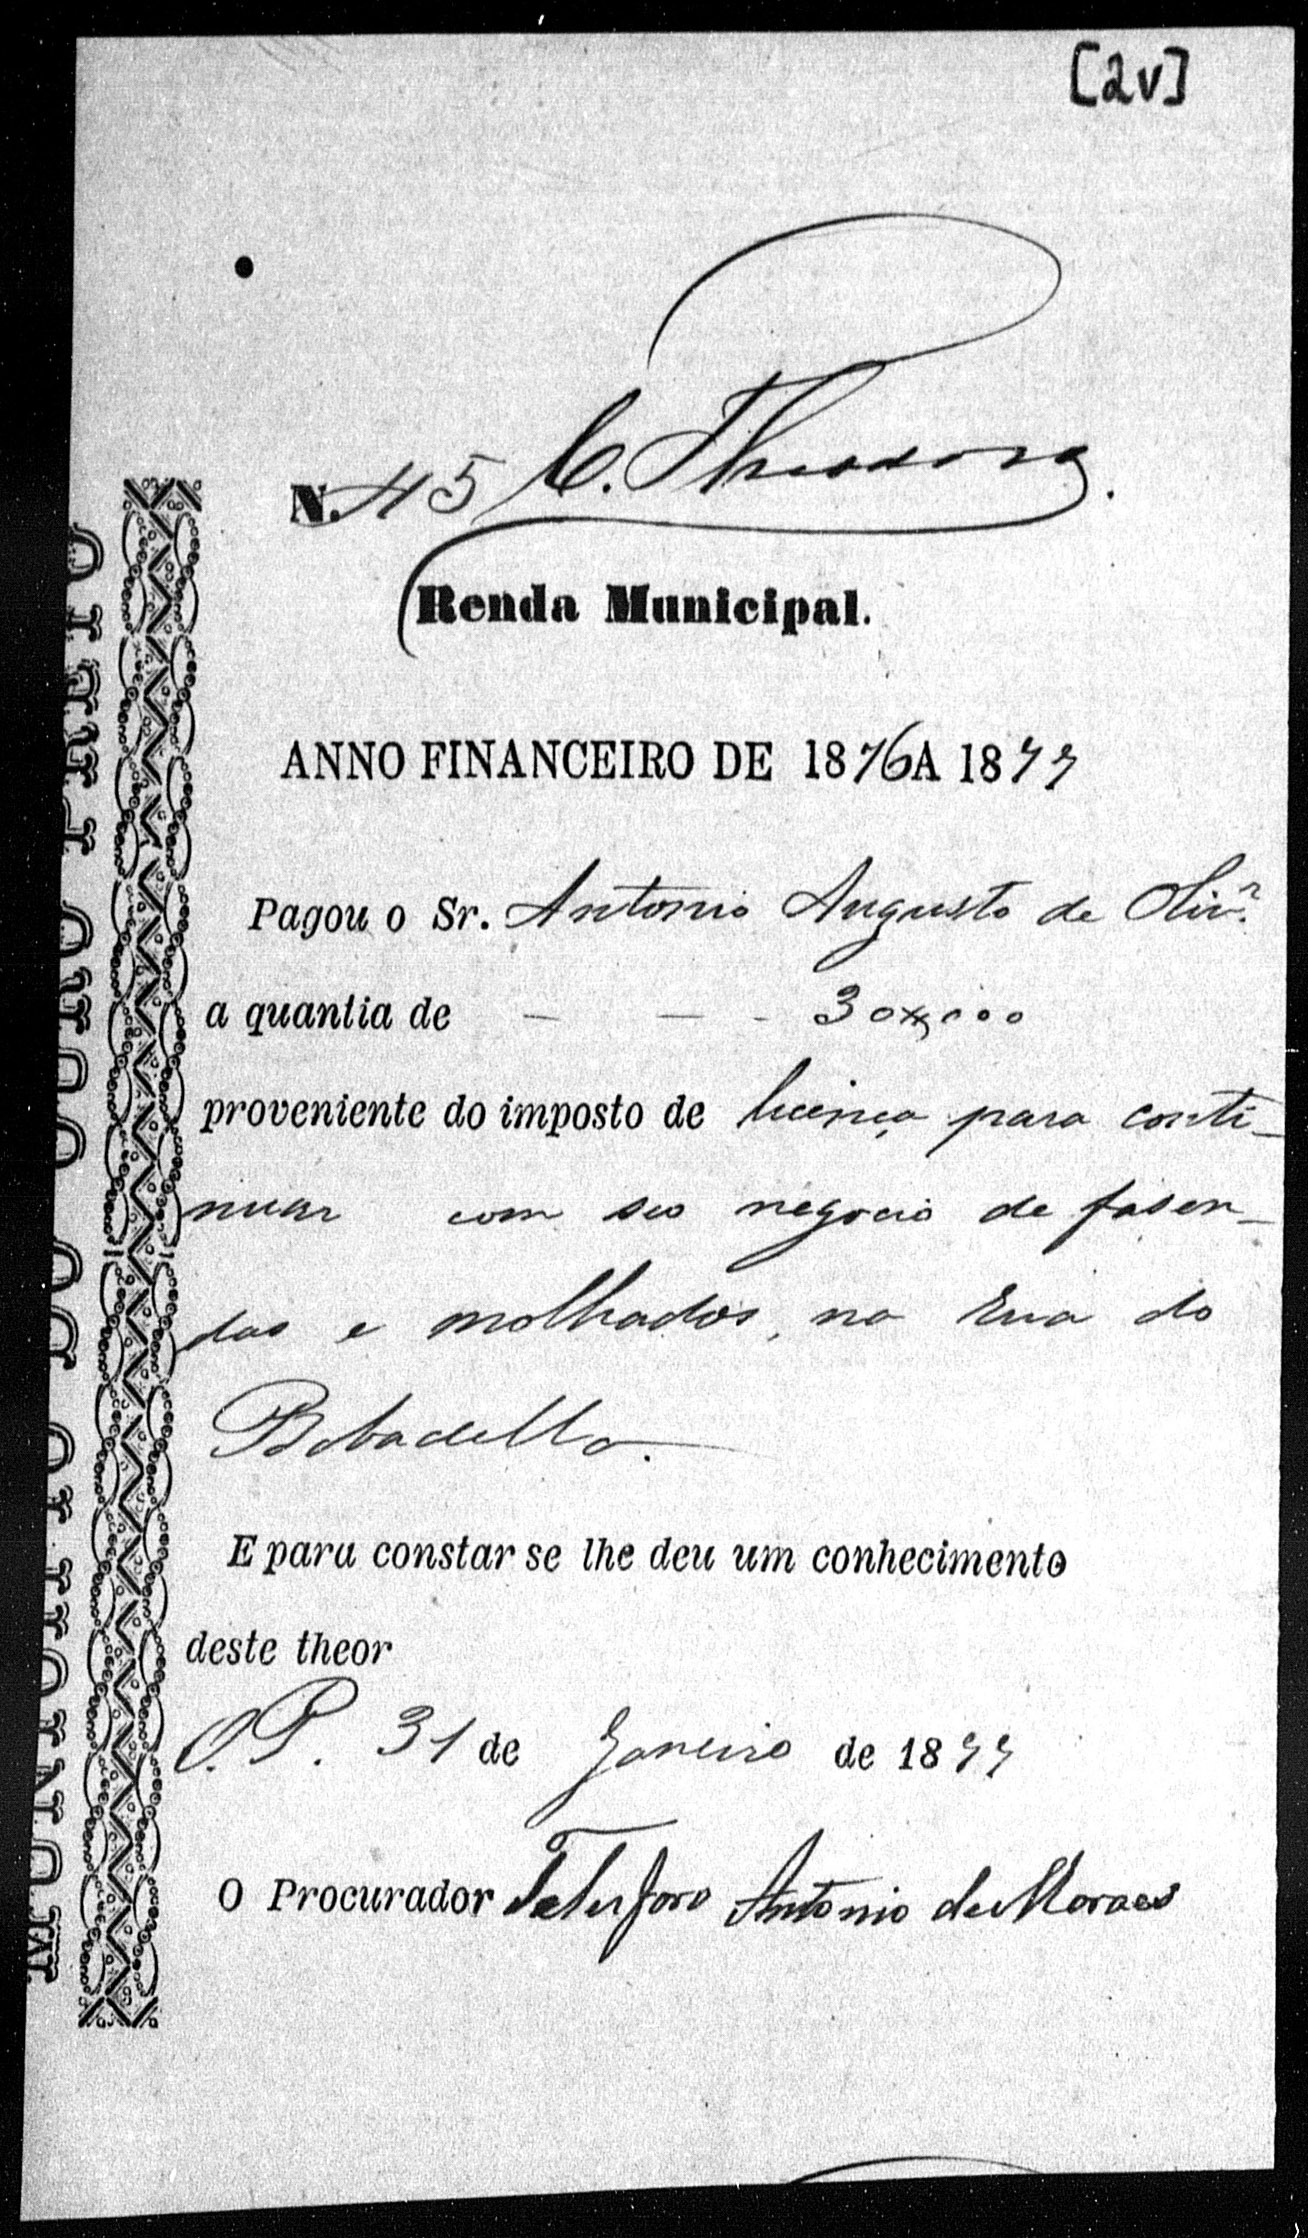 [2v]
N. 45 C. Theodoro.
Renda Municipal.
ANNO FINANCEIRO DE 1876 A 1877
Pagou o Sr. Antonio Augusto de Olivr.ª
a quantia de - - - 30$000
proveniente do imposto de licença para conti-
nuar com seo negocio de fasen-
das e molhados, na Rua do
Bobadella.
E para constar se lhe deu um conhecimento
deste theor
O. P. 31 de Janeiro de 1877
O Procurador Telesforo Antonio de Moraes